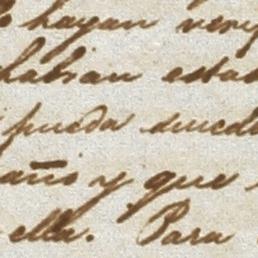 hayan
habian esta
pueda suced
año y que
ella. Para